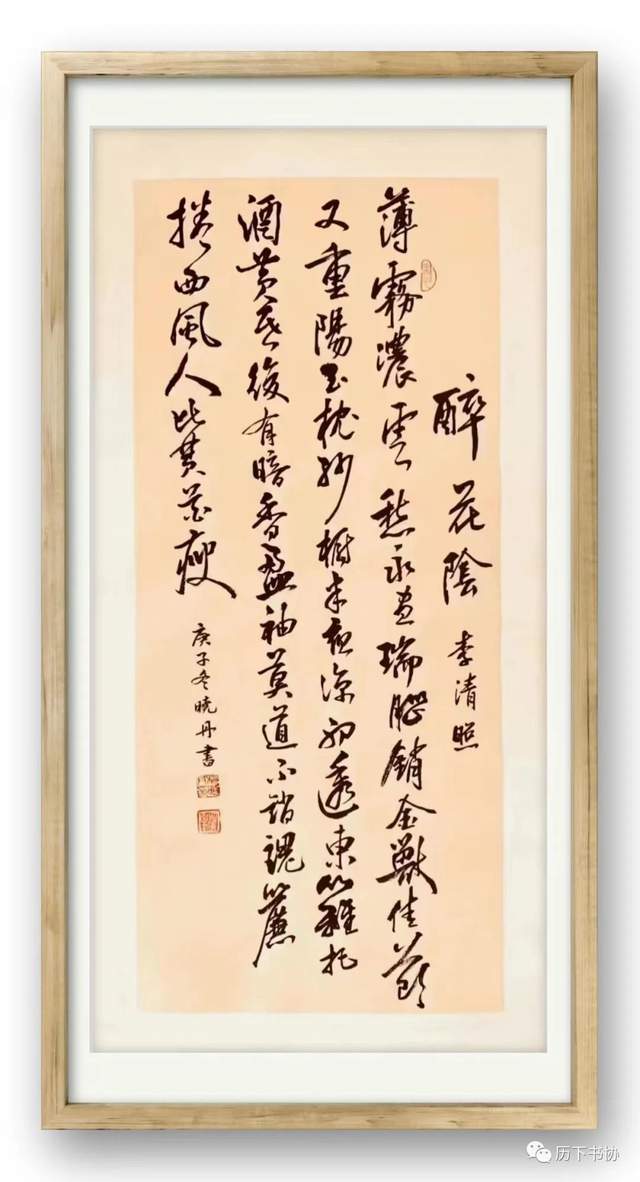 醉花陰 李清照
薄霧濃雲愁永晝瑞腦銷金獸佳節
又重陽玉枕紗橱半夜涼初透東籬把
酒黄昏後有暗香盈袖莫道不銷魂簾
捲西風人比黄花瘦
庚子冬晓丹書
历下书协